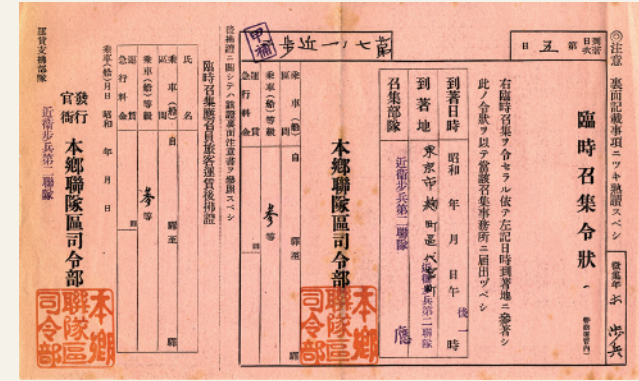 ◎注意 裏面記載事項ニツキ熟讀スベシ
到著
日次
第五日
徵集年
步兵
臨時召集令狀
右臨時召集ヲ令セラル依テ左記日時到著地ニ參著シ
此ノ令狀ヲ以テ當該召集事務所ニ屆出ヅベシ
到著日時 昭和 年 月 日午後一時
到著地 東京市麴町區代官町
近衛步兵第二聯隊
召集部隊 近衛步兵第二聯隊
本鄉聯隊區司令部
本鄉
聯隊區
司令部
甲補
第七ノ一近步
乘車(船)
區間
自 驛至 驛
乘車(船)等級 參等
運賃
急行料金
後拂證ニ關シテハ該證裏面注意書ヲ參照スベシ
臨時召集應召員旅客運賃後拂證
氏名
乘車(船)
區間
自 驛至 驛
乘車(船)等級 參等
運賃 圓
急行料金
乘車(船)月日 昭和 年 月 日
發行
官衙
本鄉聯隊區司令部
本鄉
聯隊區
司令部
運賃支拂部隊 近衛步兵第二聯隊